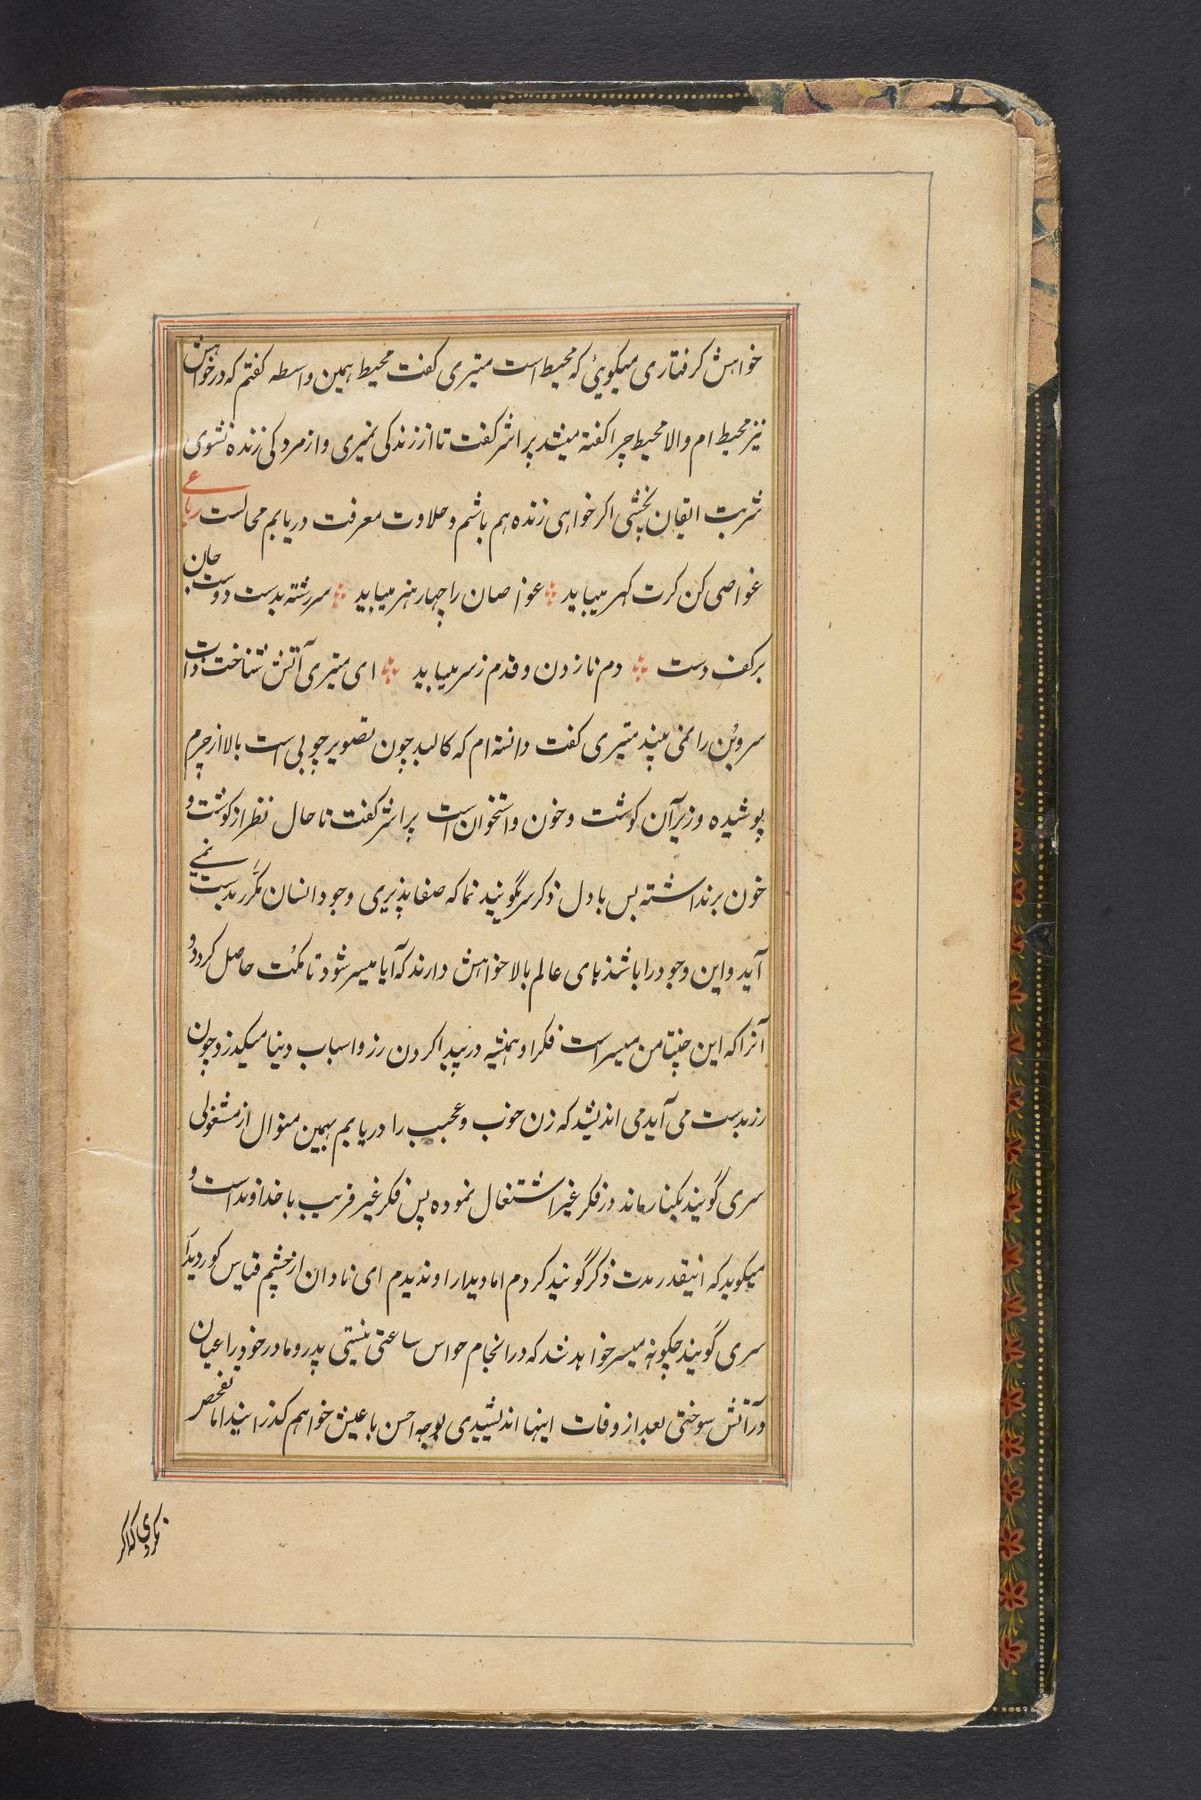 خواهش کرفتاری میکوئی که محیط است میتری کفت محیط همین واسطه کفتم که در خواهش
نیز محیط ام والا محیط چرا کفته میشد پراشر کفت تا از زندکی نمیری و از مردکی زنده نشوی
شربت ایقان بخشی اکر خواهی زنده هم باشم و حلاوت معرفت دریابم محالست رباعی
غواصی کن کرت کهر میباید غواصان را چهار هنر میباید سررشته بدست دوست جان
برکف دست دم نازدن و قدم ز سر میباید ای میتری آتش شناخت ذات
سروبُن را نمی بیند میتری کفت دانسته ام که کالبد چون تصویر چوبی است بالا از چرم
پوشیده و زیر آن کوشت و خون و استخوان است پراشر کفت تا حال نظر از کوشت و
خون برنداشته بس با دل ذکر سری گوبیند نما که صفا پذیری وجود انسان مکرر بدست نمی
آید و این وجود را باشندهای عالم بالا خواهش دارند که آیا میسر شود تا مکت حاصل کردد و
آنرا که این چنیتا من میسر است فکر او همیشه در پیدا کردن زر و اسباب دنیا میکذرد چون
زر بدست می آید می اندیشد که زن خوب و عجیب را دریابم بهمین منوال از مشغولی
سری گوبیند بکنار ماند در فکر غیر اشتغال نموده پس فکر غیر فریب با خداوند است و
میکوید که اینقدر مدت ذکر گوبیند کردم اما دیدار او ندیدم ای نادان از چشم قیاس کور دیدار
سری گوبیند چکونه میسر خواهد شد که در انجام حواس ساعتی نیستی پدر و مادر خود را عیان
در آتش سوختی بعد از وفات اینها اندیشیدی بوجه احسن با عیش خواهم کذرانید اما تفحص
نکردی که اکر